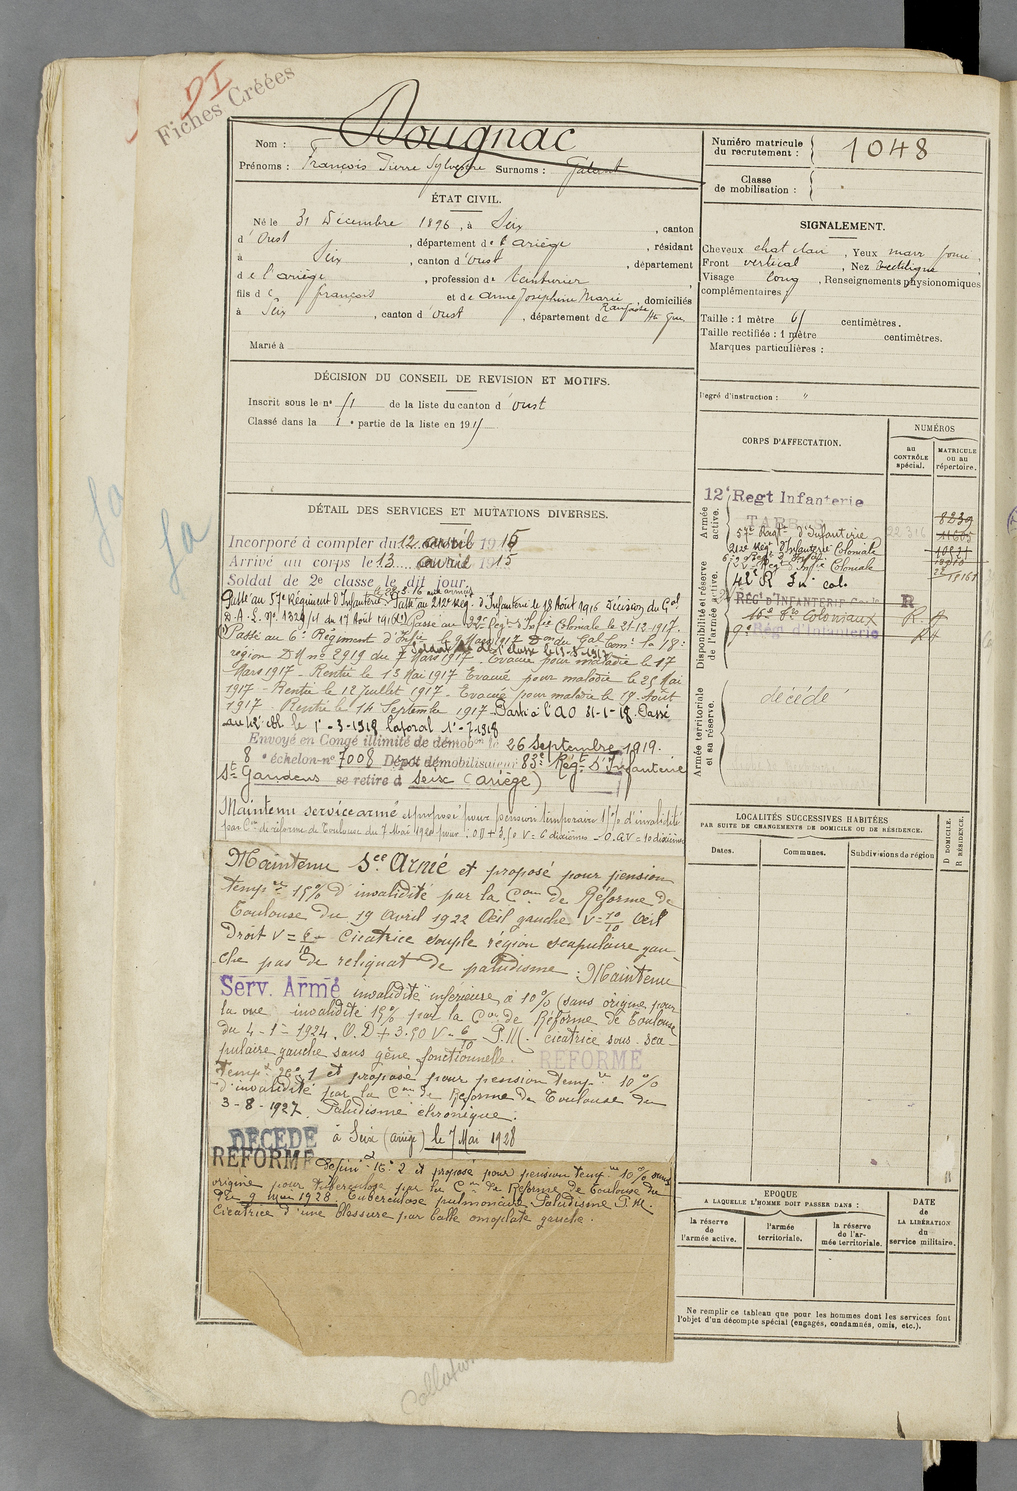 DI
Fiches Créées
Nom : Dougnac
Prénoms : François Pierre Sylvestre Surnoms :
Numéro matricule du recrutement : 1048
Classe de mobilisation :
ÉTAT CIVIL.
Né le 31 Décembre 1896, à Seix, canton
d'Oust, département de l'ariège, résidant
à Seix, canton d'oust, département
de l'ariège, profession de
fils de françois et de anne Josephine Marie, domiciliés
à Seix, canton d'oust, département de
Marié à
SIGNALEMENT.
Cheveux chat clair, Yeux marr
Front vertical, Nez rectiligne
Visage long, Renseignements physionomiques
complémentaires
Taille : 1 mètre 61 centimètres.
Taille rectifiée : 1 mètre centimètres.
Marques particulières :
DÉCISION DU CONSEIL DE REVISION ET MOTIFS.
Inscrit sous le n° 51 de la liste du canton d'oust
Classé dans la 1e partie de la liste en 1915
Degré d'instruction : "
CORPS D'AFFECTATION.
NUMÉROS
au CONTRÔLE spécial.
MATRICULE OU AU répertoire.
Armée active.
12e Regt Infanterie
TARBES
57e Regt d'Infanterie
212e Rég d'Infanterie Coloniale
42e R Inf col.
RÉG D'INFANTERIE
R
9e Rég d'Infanterie
Disponibilité et réserve de l'armée active.
Armée territoriale et sa réserve.
décédé
DÉTAIL DES SERVICES ET MUTATIONS DIVERSES.
Incorporé à compter du 12 avril 1915
Arrivé au corps le 13 avril 1915
Soldat de 2e classe le dit jour.
Passé au 57e Régiment d'Infanterie le 28-5-16 aux armées Passé au 212e Rég. d'Infanterie le 18 Août 1916 Décision du Gal
D.A.L. N° 1329/11 du 17 Août 1916 Passé au 22e Regt d'Infie Coloniale le 21-12-1917
Passé au 6e Régiment d'Infie le 9 Mars 1917 Don du Gal Comt la 18e
région DM n° 2919 du 7 Mars 1917 Evacué pour maladie le 17
Mars 1917 - Rentré le 13 Mai 1917 Evacué pour maladie le 25 Mai
1917 - Rentré le 12 juillet 1917 - Evacué pour maladie le 17 Août
1917 - Rentré le 14 Septembre 1917 Parti à l'A O 31-1-18. Passé
au 42e col. le 1er-3-1918 Caporal 1er-7-1918
Envoyé en Congé illimité de démobon le 26 Septembre 1919.
8e échelon n° 7008 Dépôt démobilisateur 83e Régt D'Infanterie
St Gaudens se retire à Seix (Ariège)
Maintenu service armé et proposé pour pension temporaire 15% d'invalidité
par Con de réforme de Toulouse du 7 Mai 1920 pour : OD + 3,50 V = 6 dixièmes - O.G V = 10 dixièmes
Maintenu Sce Armé et proposé pour pension
tempre 15% d'invalidité par la Con de Réforme de
Toulouse du 19 Avril 1922 Œil gauche V = 10/10 Œil
Droit V = 6/10 - Cicatrice souple région scapulaire gau-
che pas de reliquat de paludisme. Maintenu
Serv. Armé invalidité inférieure à 10% (sans origine pour
la vue invalidité 15% par la Con de Réforme de Toulouse
du 4-1-1924. O.D + 3.50 V = 6/10 P.M. cicatrice sous sca-
pulaire gauche sans gêne fonctionnelle. REFORMÉ
tempt 26e 1 et proposé pour pension tempre 10%
d'invalidité par la Con de Réforme de Toulouse du
3-8-1927. Paludisme chronique.
DÉCÉDÉ à Seix (ariège) le 7 Mai 1928
REFORMÉ Définif N° 2 et proposé pour pension tempre 10% sans
origine pour tuberculose par la Con de Réforme de Toulouse du
9 Mai 1928. Tuberculose pulmonaire Paludisme P.M.
Cicatrice d'une blessure par balle omoplate gauche.
LOCALITÉS SUCCESSIVES HABITÉES
PAR SUITE DE CHANGEMENTS DE DOMICILE OU DE RÉSIDENCE.
Dates.
Communes.
Subdivisions de région
D DOMICILE.
R RÉSIDENCE.
EPOQUE
A LAQUELLE L'HOMME DOIT PASSER DANS :
la réserve de l'armée active.
l'armée territoriale.
la réserve de l'armée territoriale.
DATE de LA LIBÉRATION du service militaire.
Ne remplir ce tableau que pour les hommes dont les services font
l'objet d'un décompte spécial (engagés, condamnés, omis, etc.).